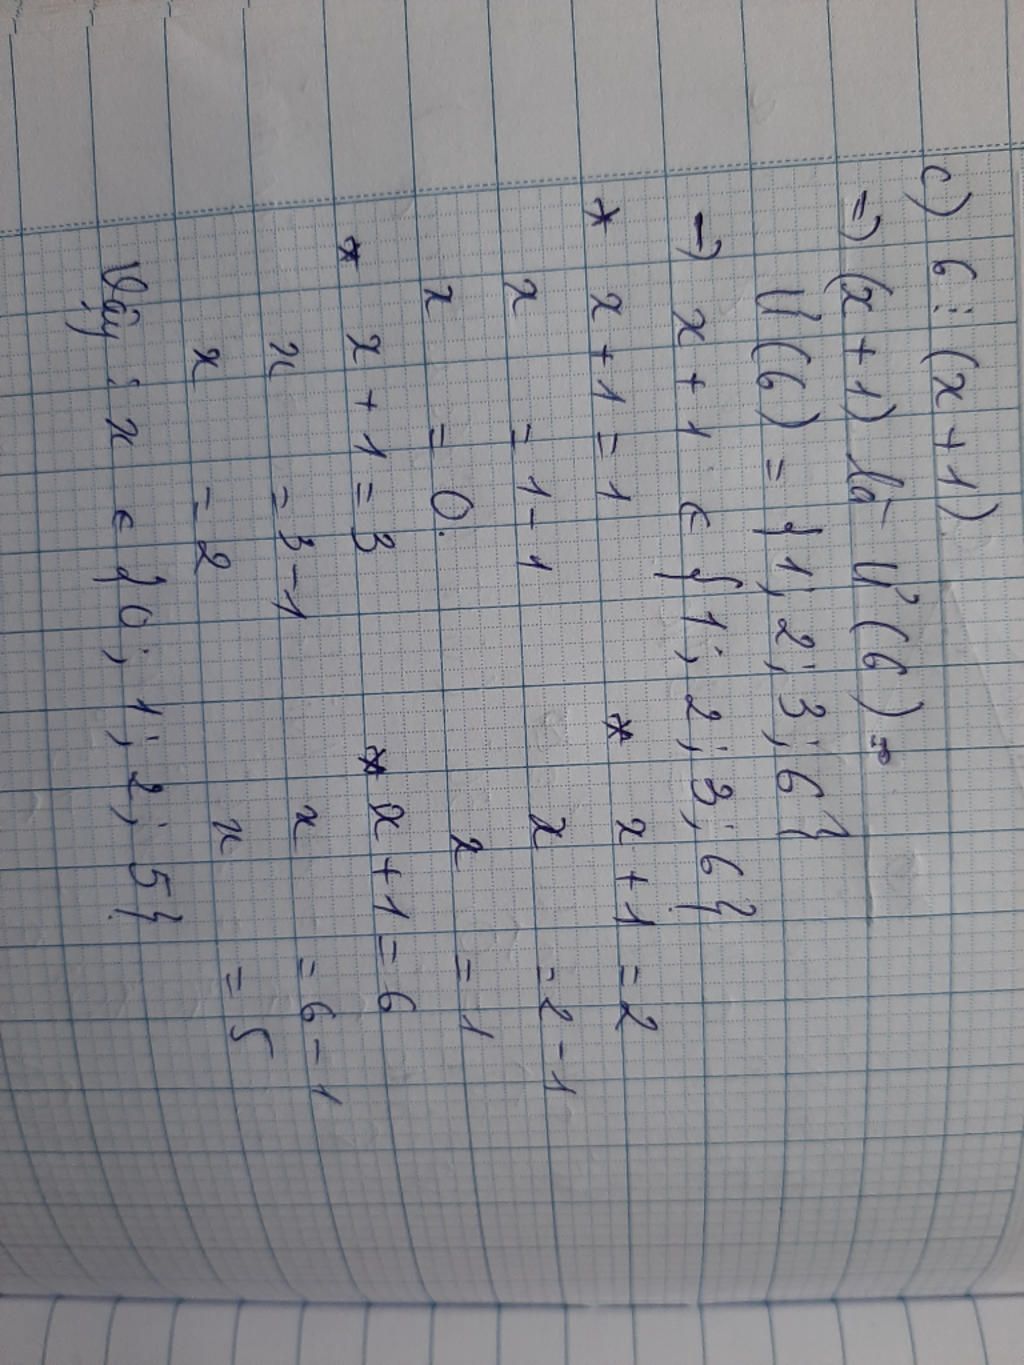 c) 6 ⋮ (x+1)
=) (x+1) là Ư(6) =
Ư(6) = {1; 2; 3; 6}
=) x + 1 ∈ {1; 2; 3; 6}
* x + 1 = 1 * x + 1 = 2
x = 1 - 1 x = 2 - 1
x = 0. x = 1
* x + 1 = 3 * x + 1 = 6
x = 3 - 1 x = 6 - 1
x = 2 x = 5
Vậy : x ∈ {0; 1; 2; 5}